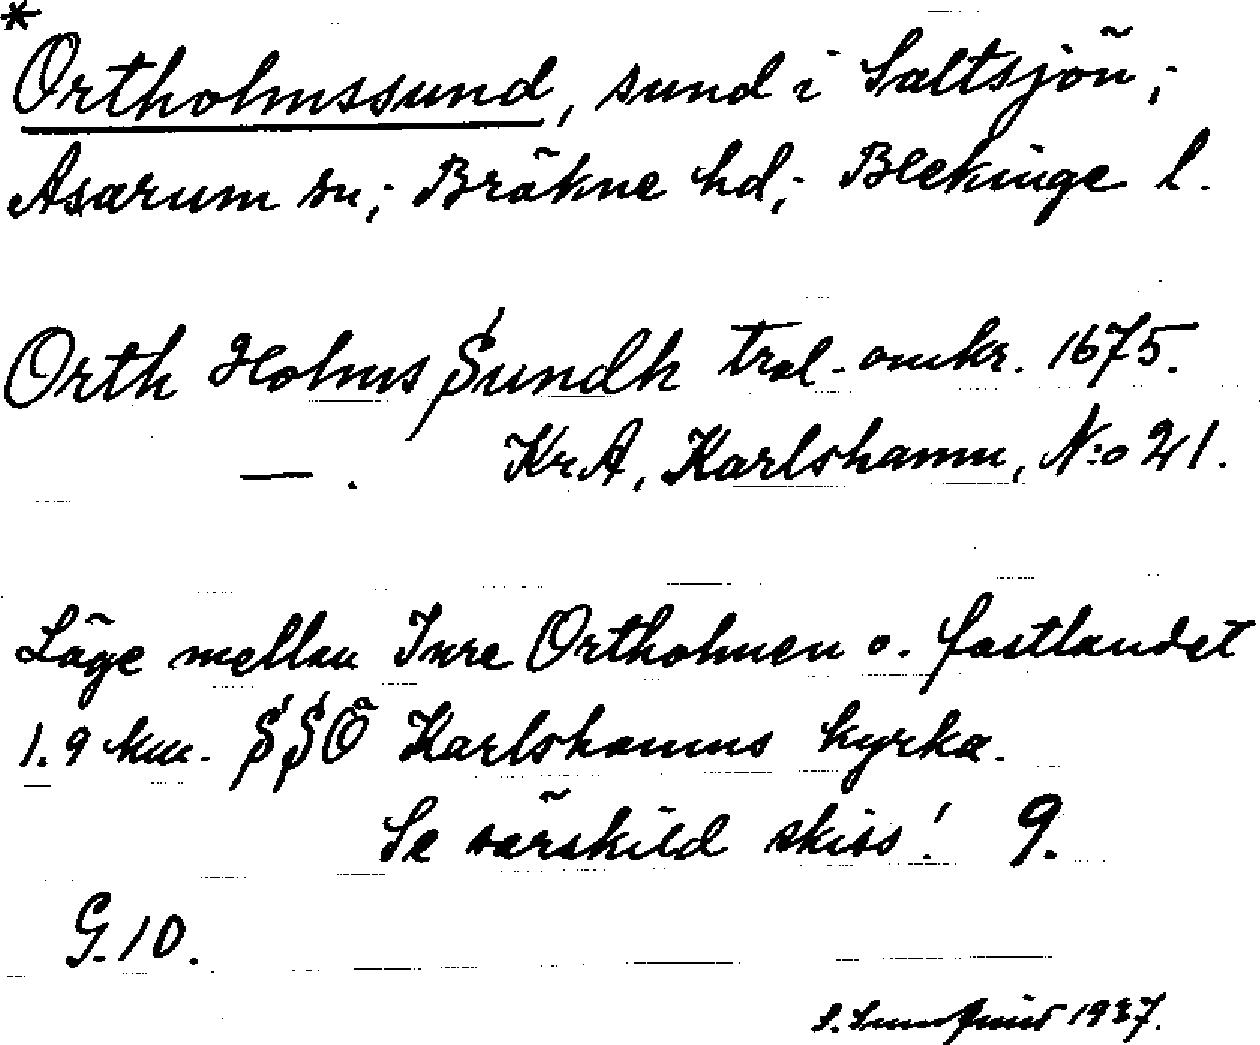 *
Ortholmssund, sund i Saltsjön;
Asarum sn; Bräkne hd; Blekinge l.
Orth Holms Sundh trol. omkr. 1675.
— . KrA, Karlshamn, N:o 21.
Läge mellan Inre Ortholmen o. fastlandet
1.9 km. SSÖ Karlshamns kyrka.
Se särskild skiss! 9.
G.10.
1937.